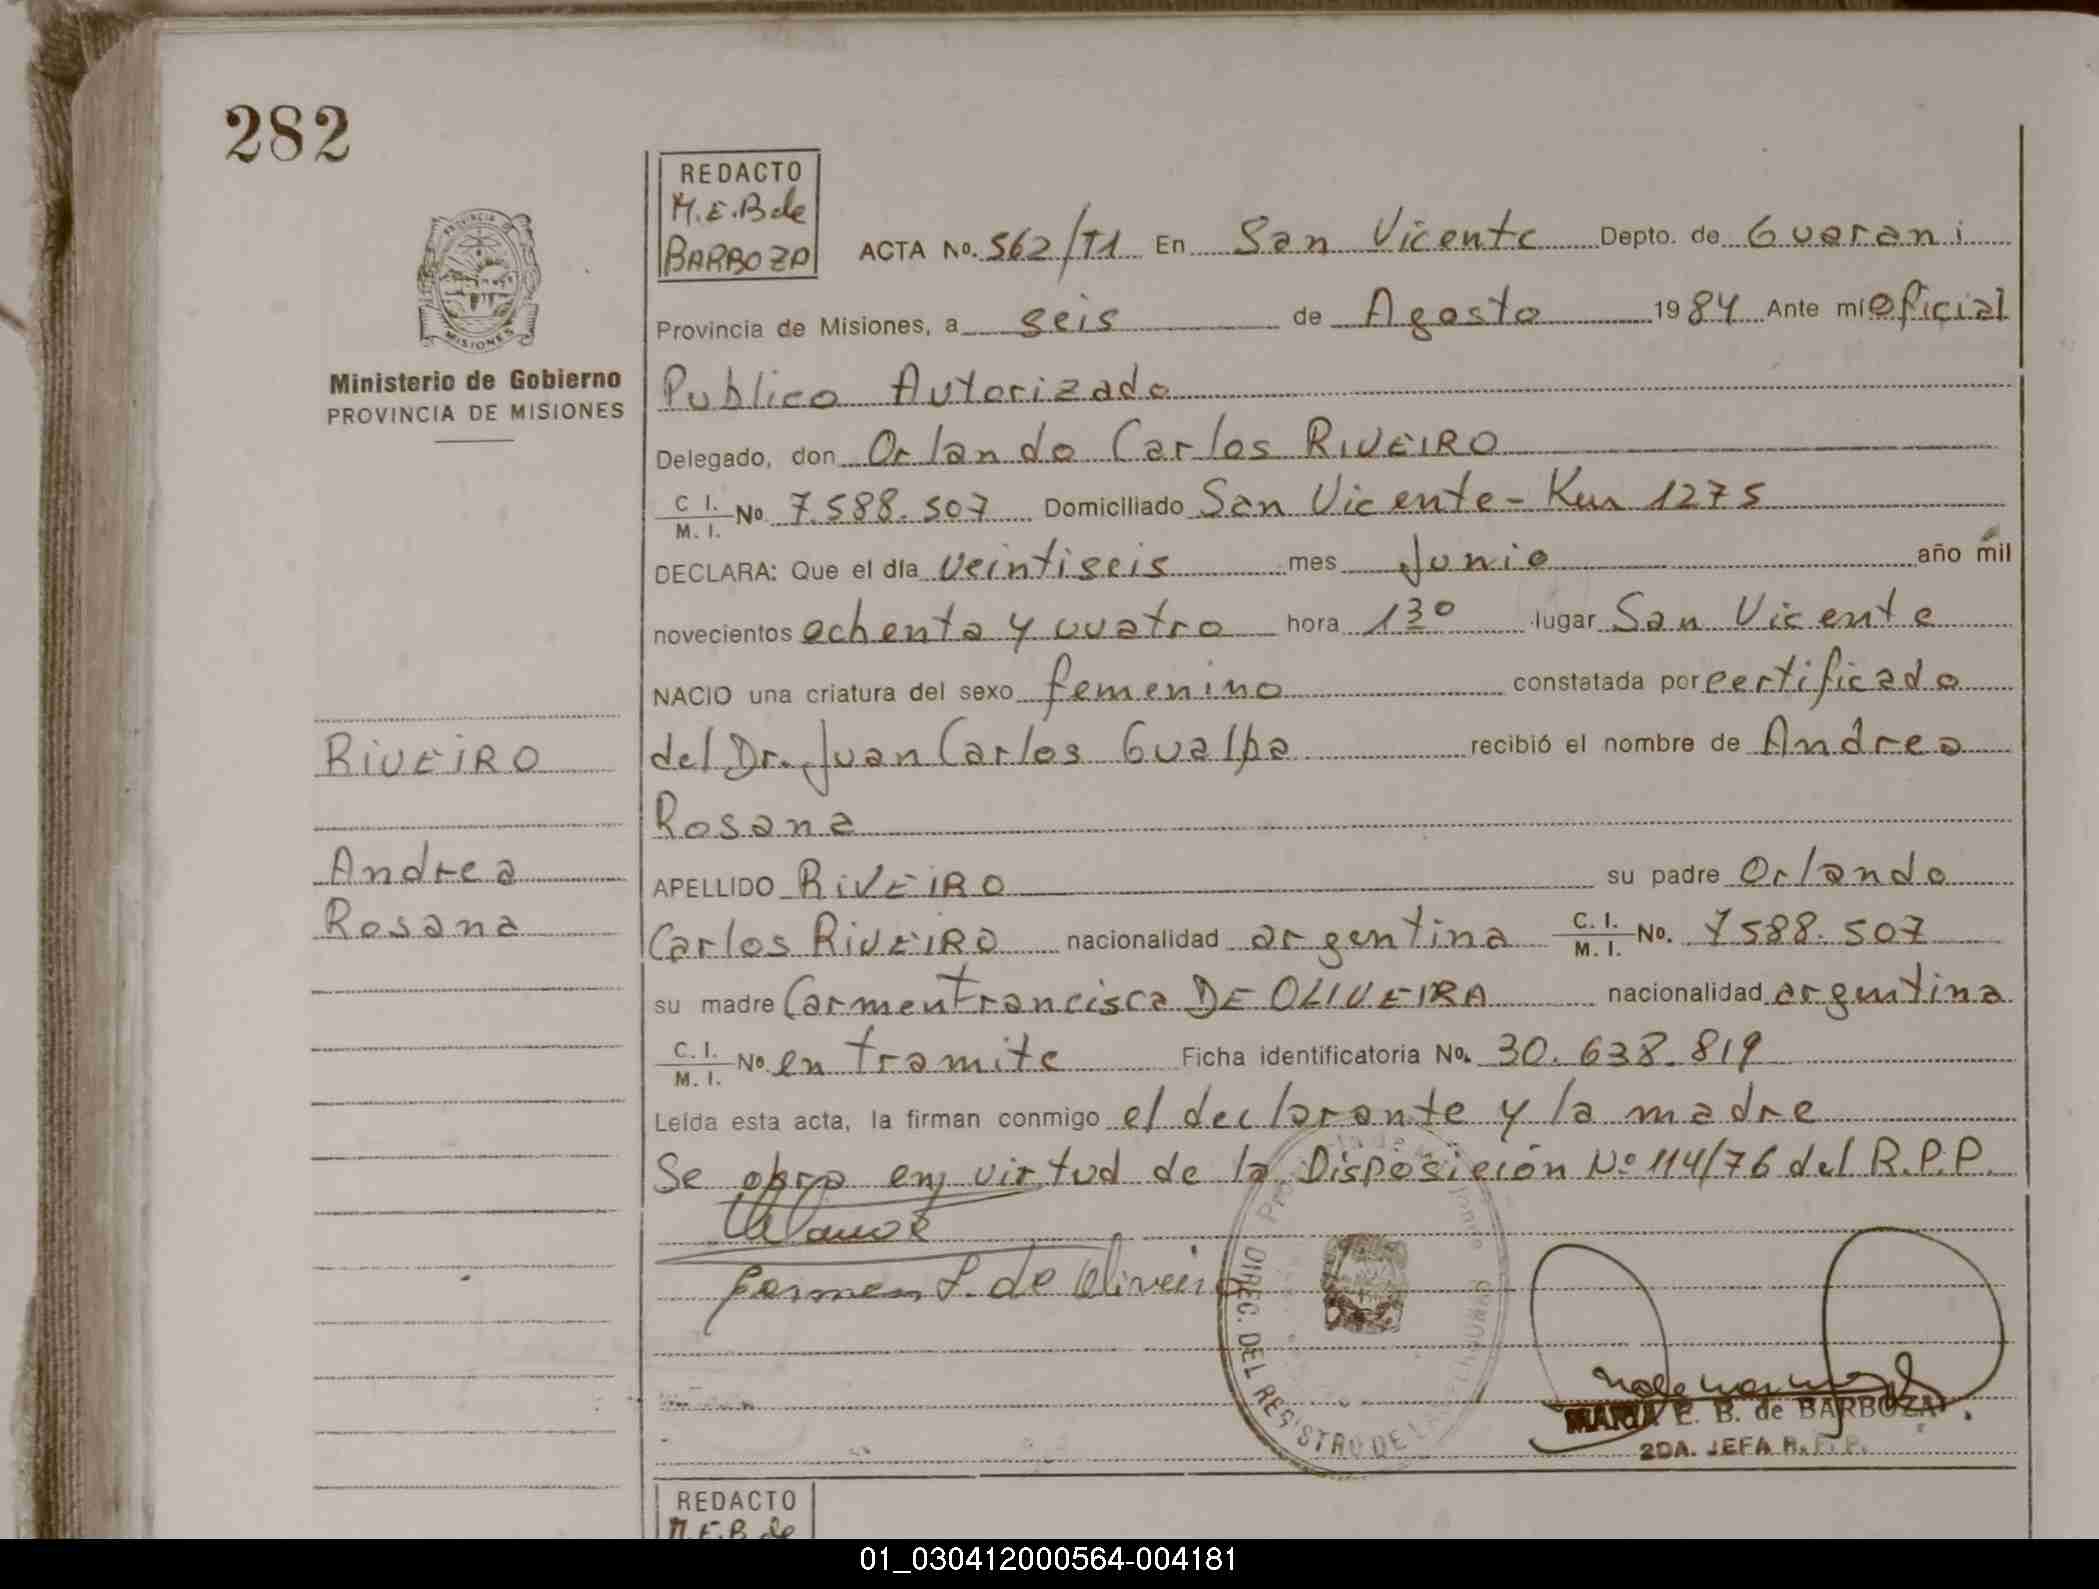 282
REDACTO
M.E.B de
BARBOZA
ACTA No. 562/T1 En San Vicente Depto. de Guarani
PROVINCIA
MISIONES
Provincia de Misiones, a seis de Agosto 1984 Ante mí oficial
Ministerio de Gobierno
PROVINCIA DE MISIONES
Publico Autorizado
Delegado, don Orlando Carlos RIVEIRO
C. I. / M. I. No. 7.588.507 Domiciliado San Vicente - Km 1275
DECLARA: Que el día veintiseis mes Junio año mil
novecientos ochenta y cuatro hora 13º lugar San Vicente
NACIO una criatura del sexo femenino constatada por certificado
del Dr. Juan Carlos Gualpa recibió el nombre de Andrea
Rosana
RIVEIRO
Andrea
Rosana
APELLIDO RIVEIRO su padre Orlando
Carlos RIVEIRO nacionalidad argentina C. I. / M. I. No. 7588.507
su madre Carmen Francisca DE OLIVEIRA nacionalidad argentina
C. I. / M. I. No. en tramite Ficha identificatoria No. 30.638.819
Leída esta acta, la firman conmigo el declarante y la madre
Se obra en virtud de la Disposición Nº 114/76 del R.P.P.
Carmen F. de Oliveira
DIREC. DEL REGISTRO DE LAS
MARIA E. B. de BARBOZA
2DA. JEFA R. P. P.
REDACTO
M.E.B de
01_030412000564-004181